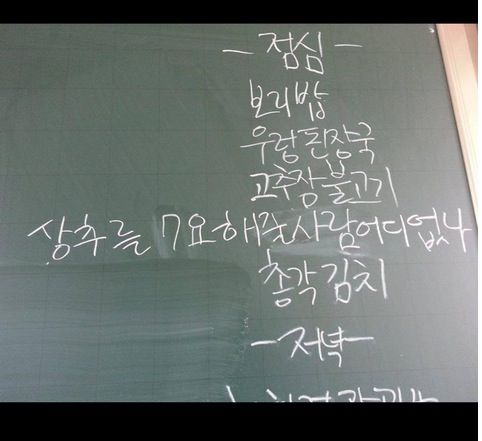 - 점심 -
보리밥
우렁된장국
고추장불고기
상추를 7요해줄사람어디없나
총각김치
- 저녁 -